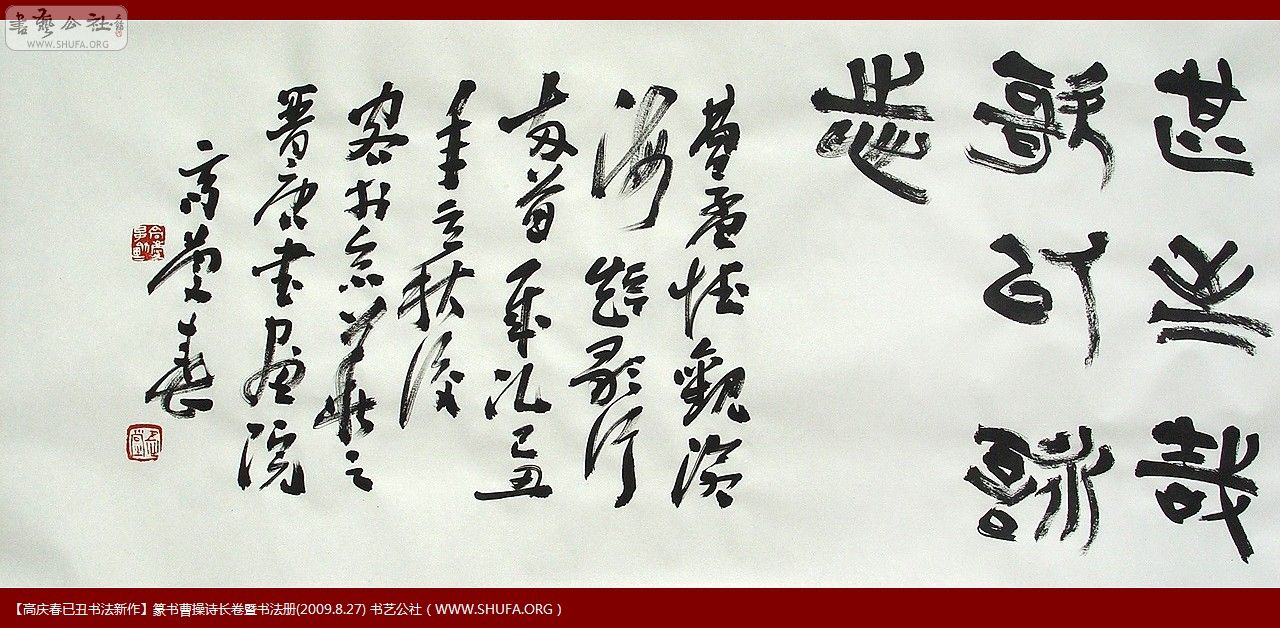 書藝公社
WWW.SHUFA.ORG
甚至哉
歌以詠
志
曹孟德觀滄
海短歌行
兩首歲次己丑
年立秋後
客於京華之
晋唐書畫院
高慶春
【高庆春已丑书法新作】篆书曹操诗长卷暨书法册(2009.8.27) 书艺公社 ( WWW.SHUFA.ORG )